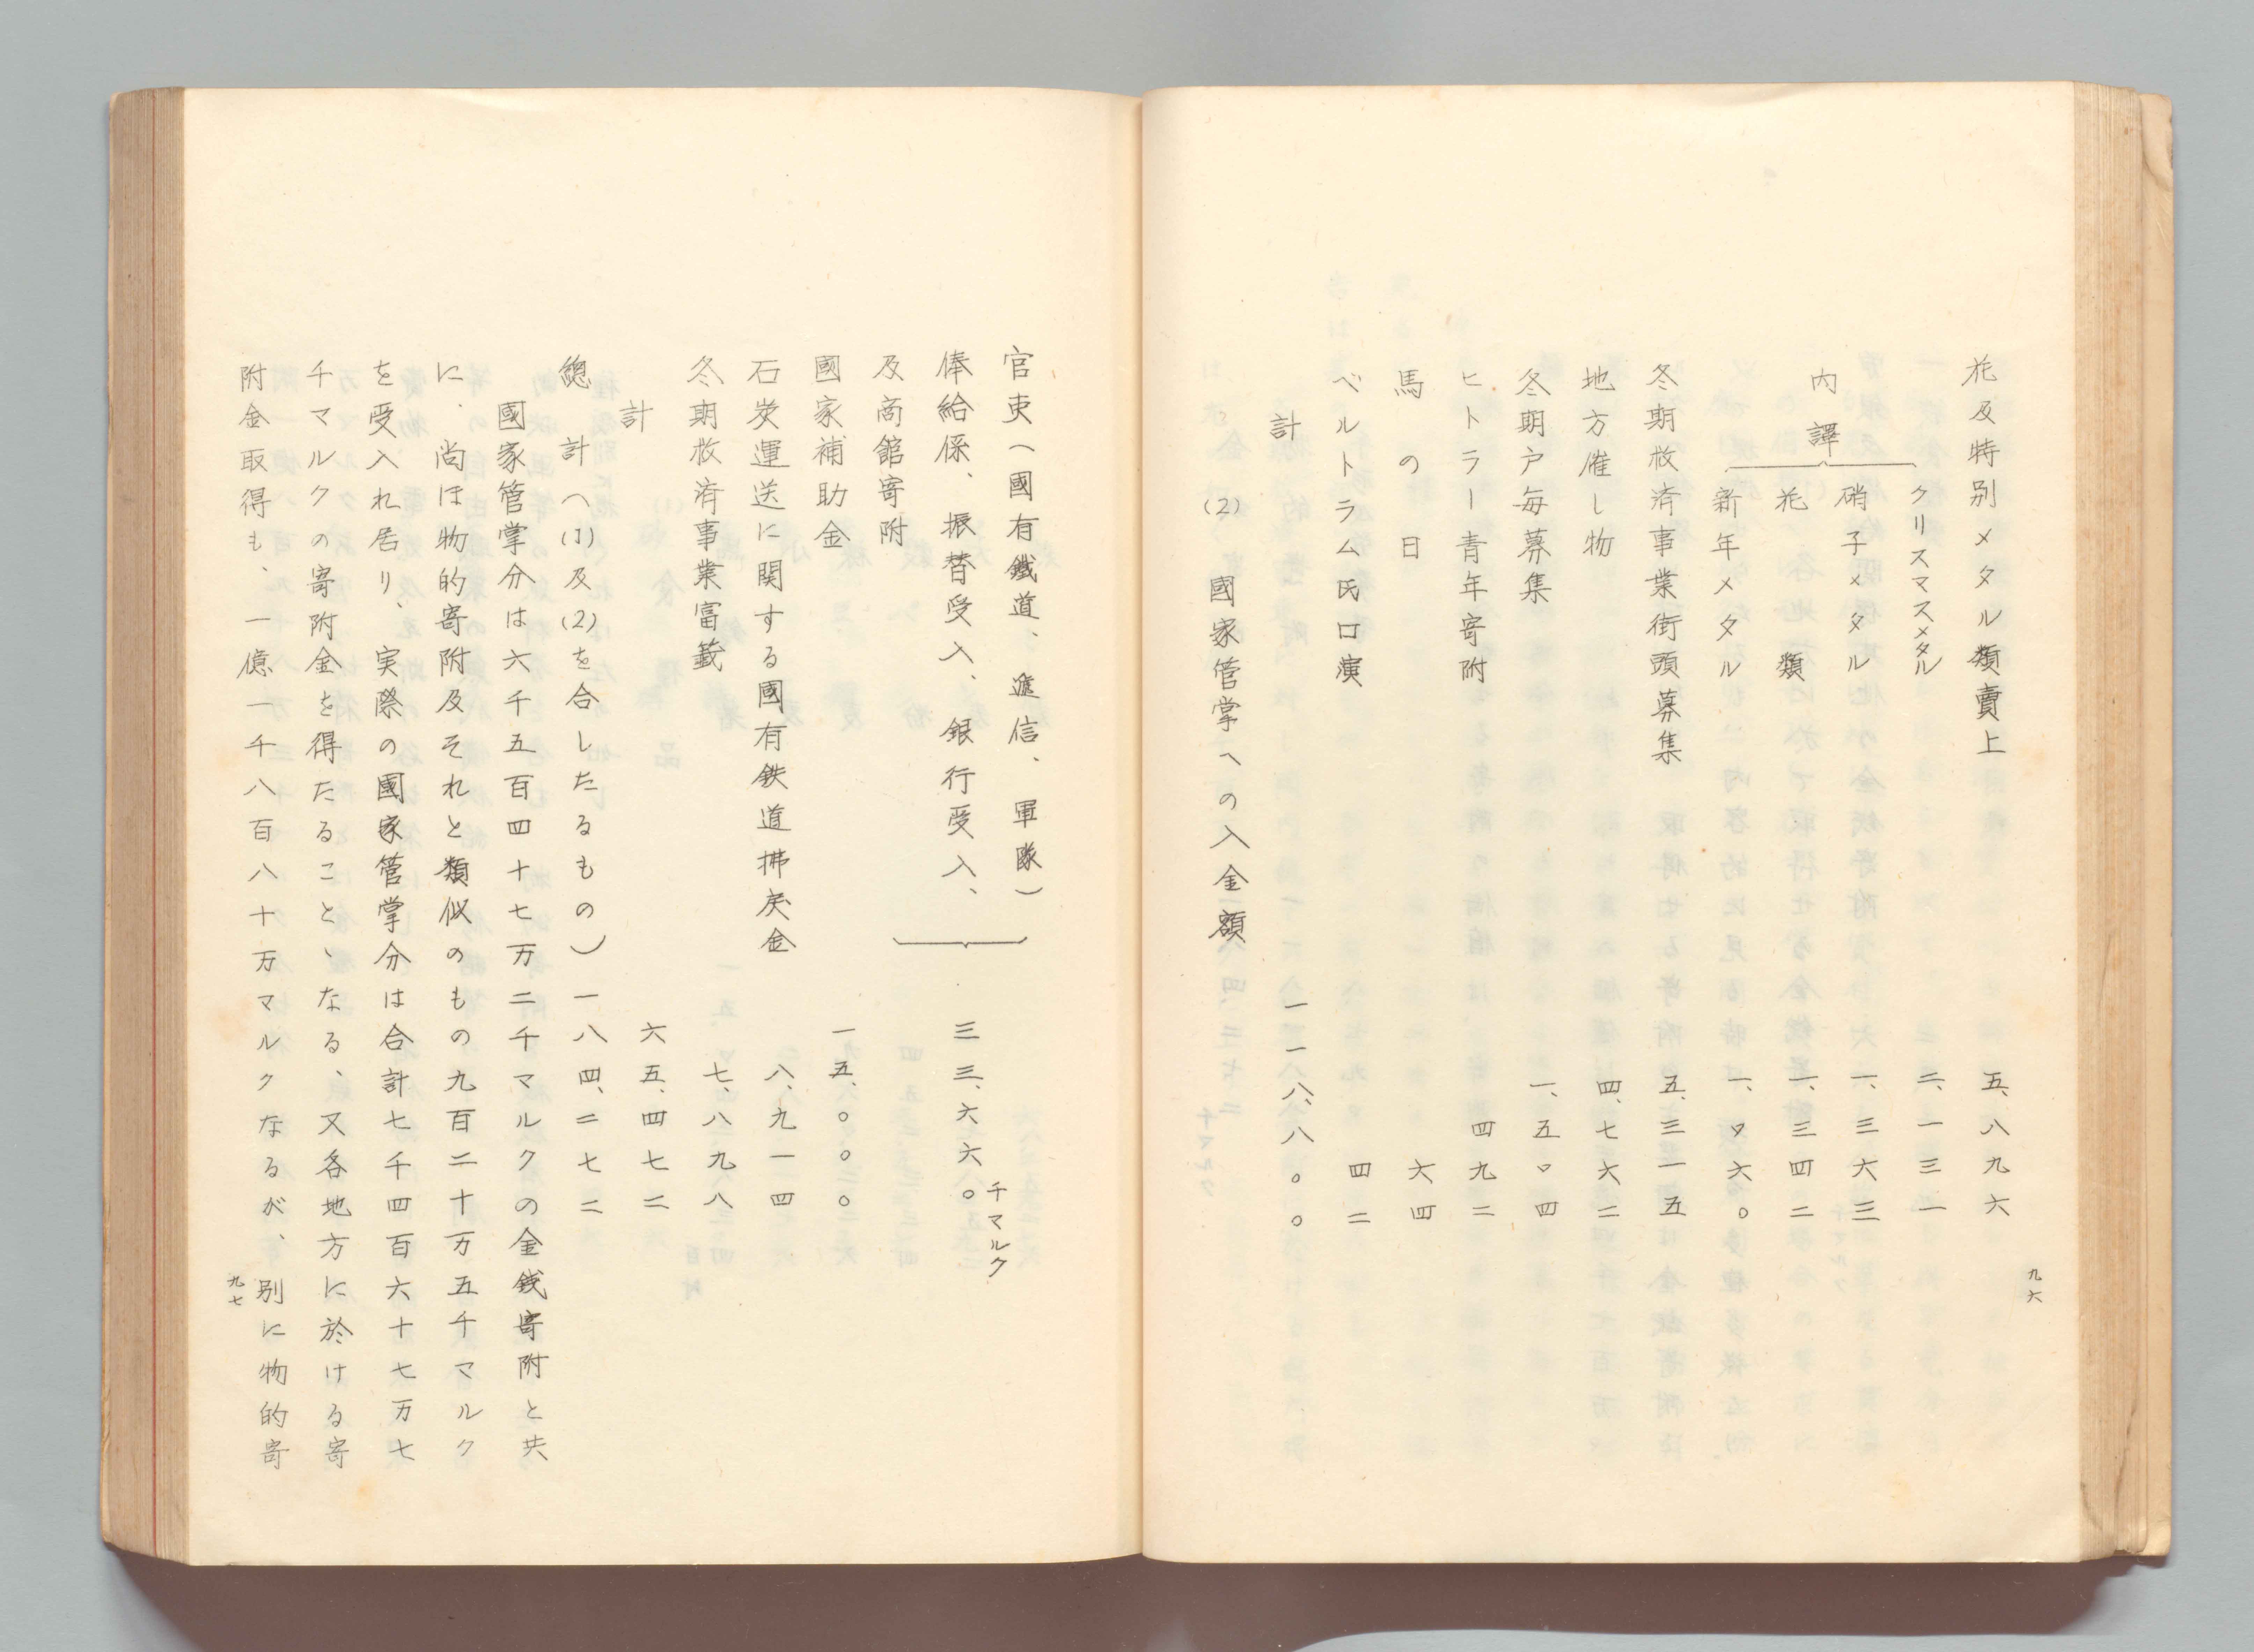 花及特別メタル類賣上　五、八九六
内譯
クリスマスメタル　二、一三一
硝子メタル　一、三六三
花類　一、三四二
新年メタル　一、〇六〇
冬期救済事業街頭募集　五、三一五
地方催し物　四、七六二
冬期戸毎募集　一、五〇四
ヒトラー青年寄附　四九二
馬の日　六四
ベルトラム氏口演　四二
計　一一八、八〇〇
(2)　國家管掌への入金額
九六
官吏（國有鐵道、遞信、軍隊）
俸給係、振替受入、銀行受入、　三三、六六〇千マルク
及商館寄附
國家補助金　一五、〇〇〇
石炭運送に関する國有鉄道拂戻金　八、九一四
冬期救済事業富籤　七、八九八
計　六五、四七二
總計（(1)及(2)を合したるもの）一八四、二七二
國家管掌分は六千五百四十七万二千マルクの金銭寄附と共
に、尚ほ物的寄附及それと類似のもの九百二十万五千マルク
を受入れ居り、実際の國家管掌分は合計七千四百六十七万七
千マルクの寄附金を得たることゝなる、又各地方に於ける寄
附金取得も、一億一千八百八十万マルクなるが、別に物的寄
九七